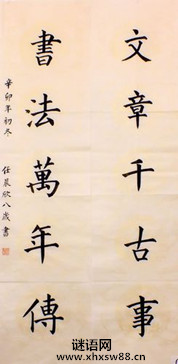 文章千古事
書法萬年傳
辛卯年初冬
任晨欣八歲書
谜语网
www.xhxsw88.cn